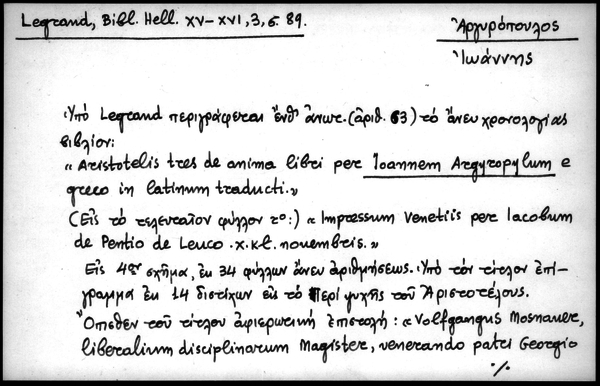 Legrand, Bibl. Hell. XV-XVI, 3, σ. 89.
Ἀργυρόπουλος
Ἰωάννης
Ὑπό Legrand περιγράφεται ἔνθ' ἄνωτ. (ἀριθ. 63) τό ἄνευ χρονολογίας
βιβλίον:
«Aristotelis tres de anima libri per Ioannem Argyropylum e
greco in latinum traducti.»
(Εἰς τό τελευταῖον φύλλον rο:) «Impressum Venetiis per Iacobum
de Pentio de Leuco .x.kl. nouembris.»
Εἰς 4ον σχῆμα, ἐκ 34 φύλλων ἄνευ ἀριθμήσεως. Ὑπό τόν τίτλον ἐπί-
γραμμα ἐκ 14 διστίχων εἰς τό Περί ψυχῆς τοῦ Ἀριστοτέλους.
Ὄπισθεν τοῦ τίτλου ἀφιερωτική ἐπιστολή: «Volfgangus Mosnauer,
liberalium disciplinarum Magister, venerando patri Georgio
·/.